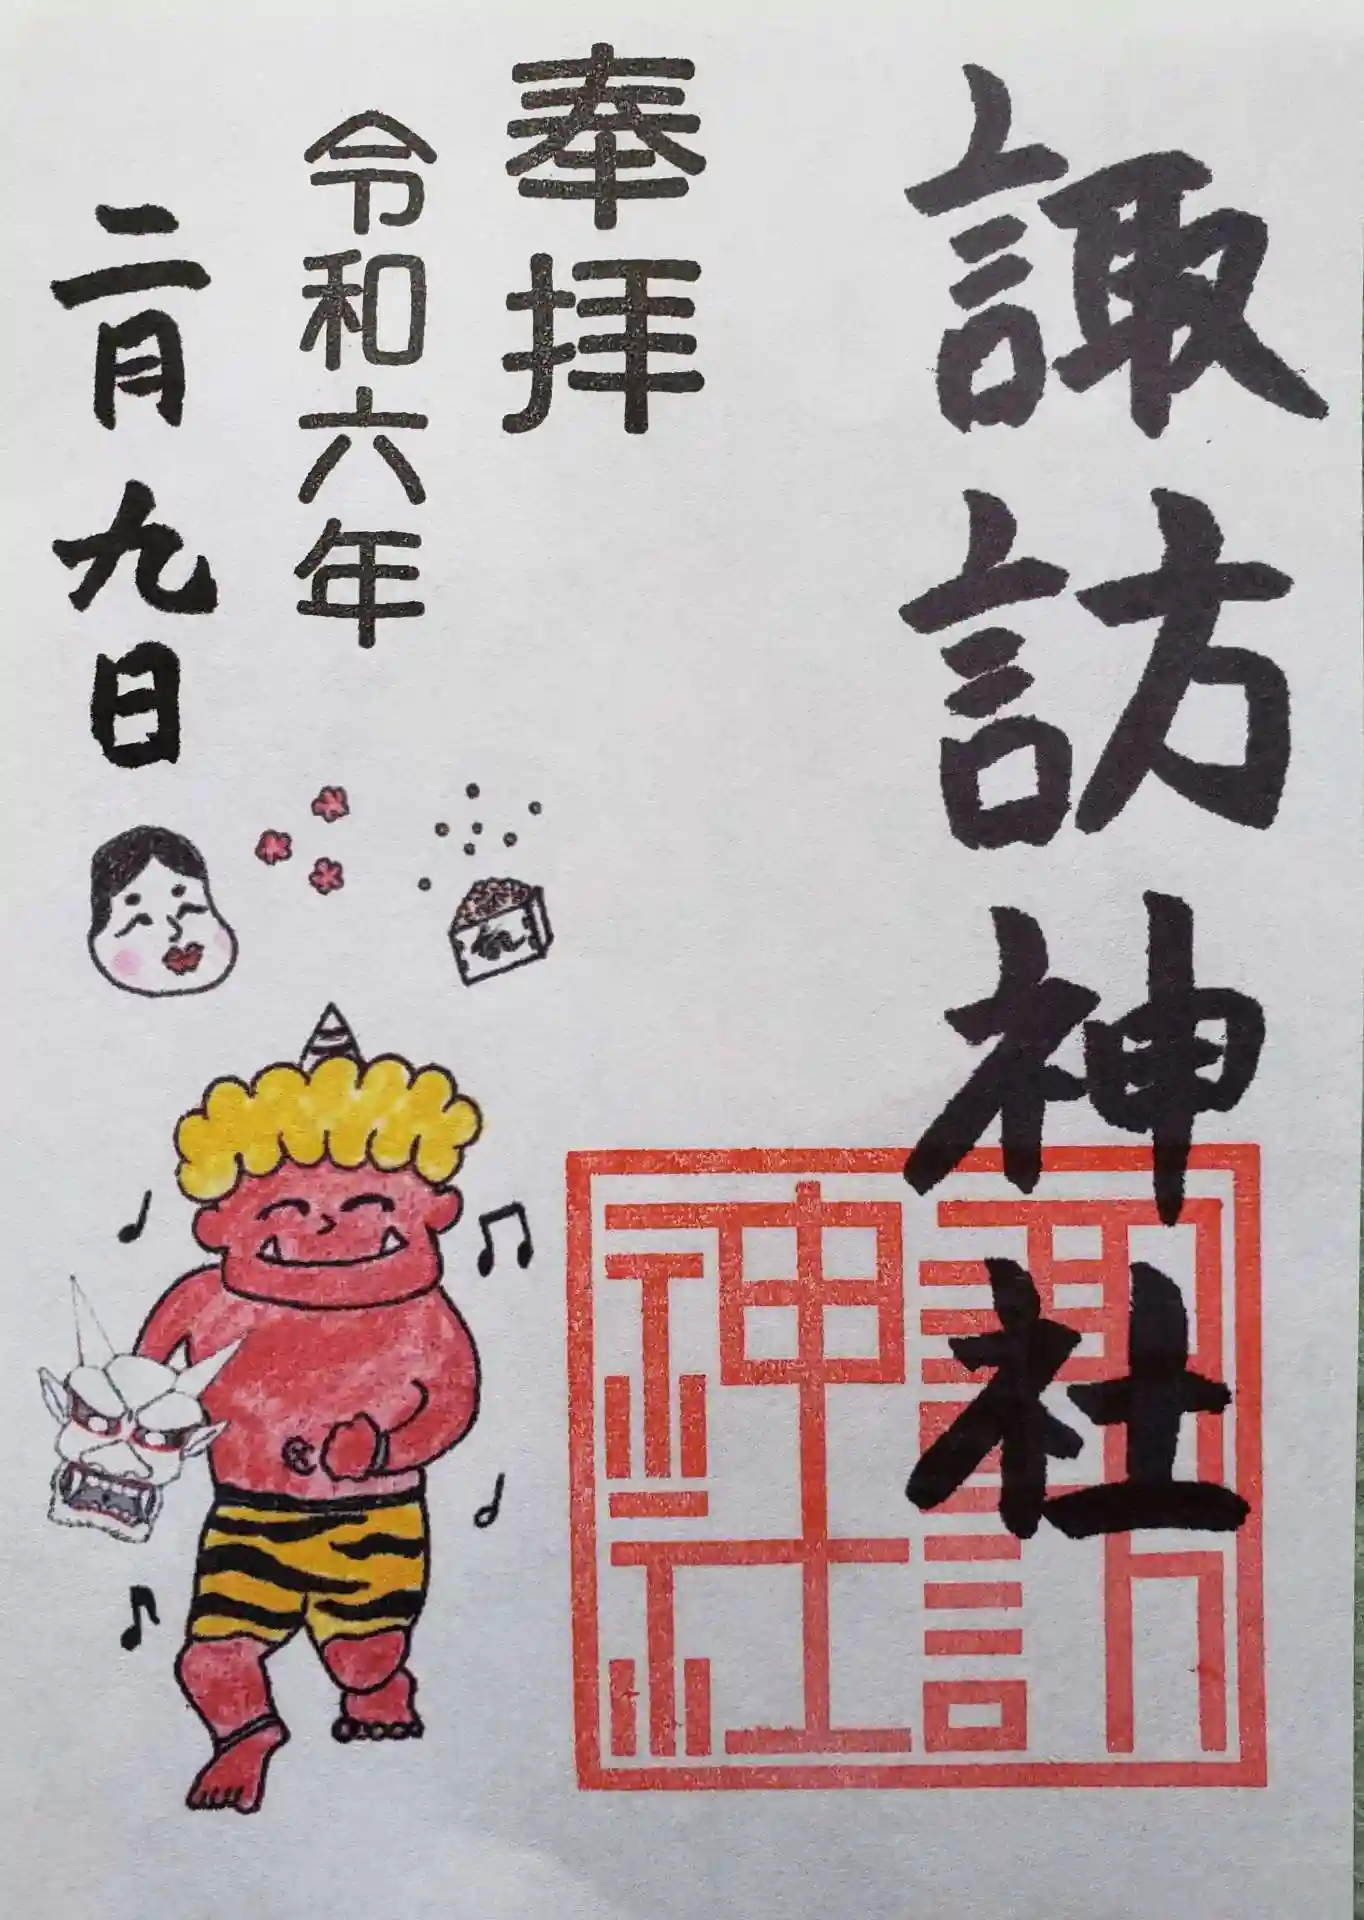 諏訪神社
奉拝
令和六年
二月九日
諏訪
神社